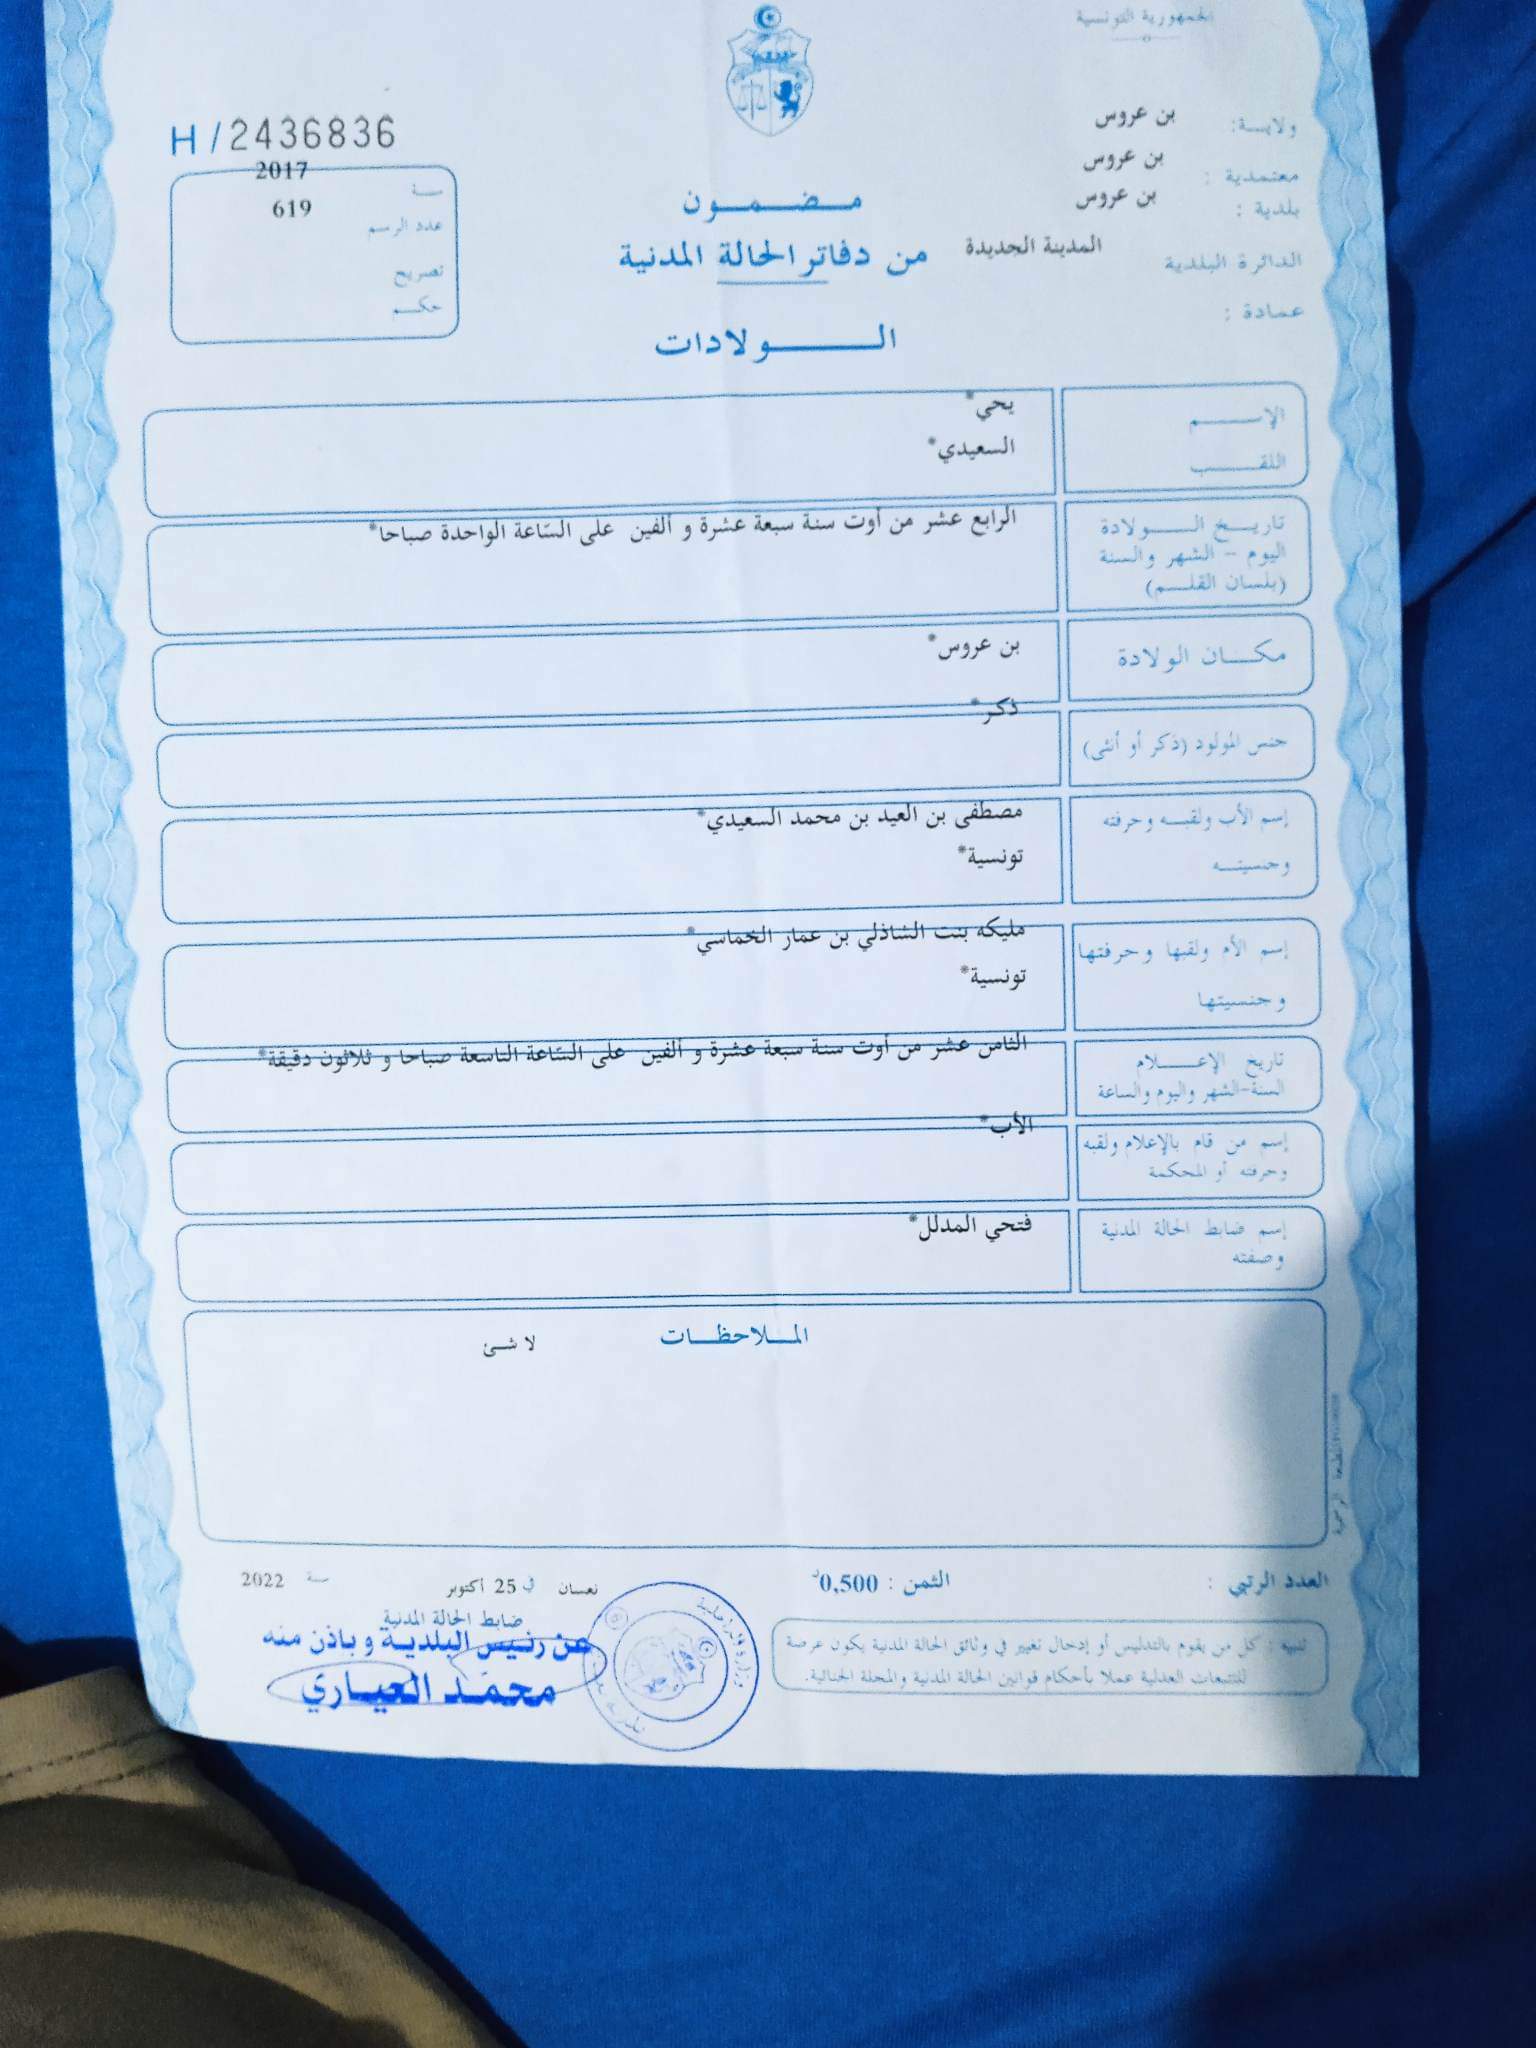 الجمهورية التونسية
ولايــة: بن عروس
معتمدية : بن عروس
بلدية : بن عروس
الدائرة البلدية المدينة الجديدة
عمادة :
H/2436836
سنة 2017
عدد الرسم 619
تصريح
حكـــم
مــضــمــون
من دفاتر الحالة المدنية
الــــولادات
الإســـــم يحي*
اللقـــــب السعيدي*
تاريــخ الــــولادة
اليوم - الشهر والسنة
(بلسان القلــم)
الرابع عشر من أوت سنة سبعة عشرة و ألفين على السّاعة الواحدة صباحا*
مكـــان الولادة بن عروس*
جنس المولود (ذكر أو أنثى) ذكـر*
إسم الأب ولقبــه وحرفته مصطفى بن العيد بن محمد السعيدي*
وجنسيتــه تونسية*
إسم الأم ولقبها وحرفتها مليكه بنت الشاذلي بن عمار الخماسي*
وجنسيتها تونسية*
تاريخ الإعـــلام
السنة-الشهر واليوم والساعة
الثامن عشر من أوت سنة سبعة عشرة و ألفين على السّاعة التاسعة صباحا و ثلاثون دقيقة*
إسم من قام بالإعلام ولقبه
وحرفته أو المحكمة
الأب*
إسم ضابط الحالة المدنية
وصفته
فتحي المدلل*
المــلاحظــات
لا شـئ
العدد الرتبي :
الثمن : 0,500د
نعسان في 25 أكتوبر سنة 2022
ضابط الحالة المدنية
عن رئيس البلدية و باذن منه
محمّد العياري
تنبيه : كل من يقوم بالتدليس أو إدخال تغيير في وثائق الحالة المدنية يكون عرضة
للتتبعات العدلية عملا بأحكام قوانين الحالة المدنية والمجلة الجنائية.